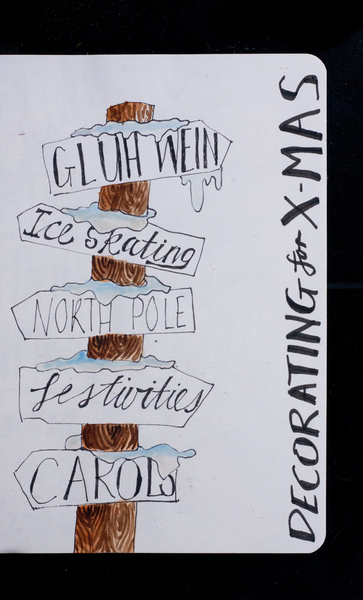 GLUH WEIN
Ice Skating
NORTH POLE
festivities
CAROLS
DECORATING for X-MAS